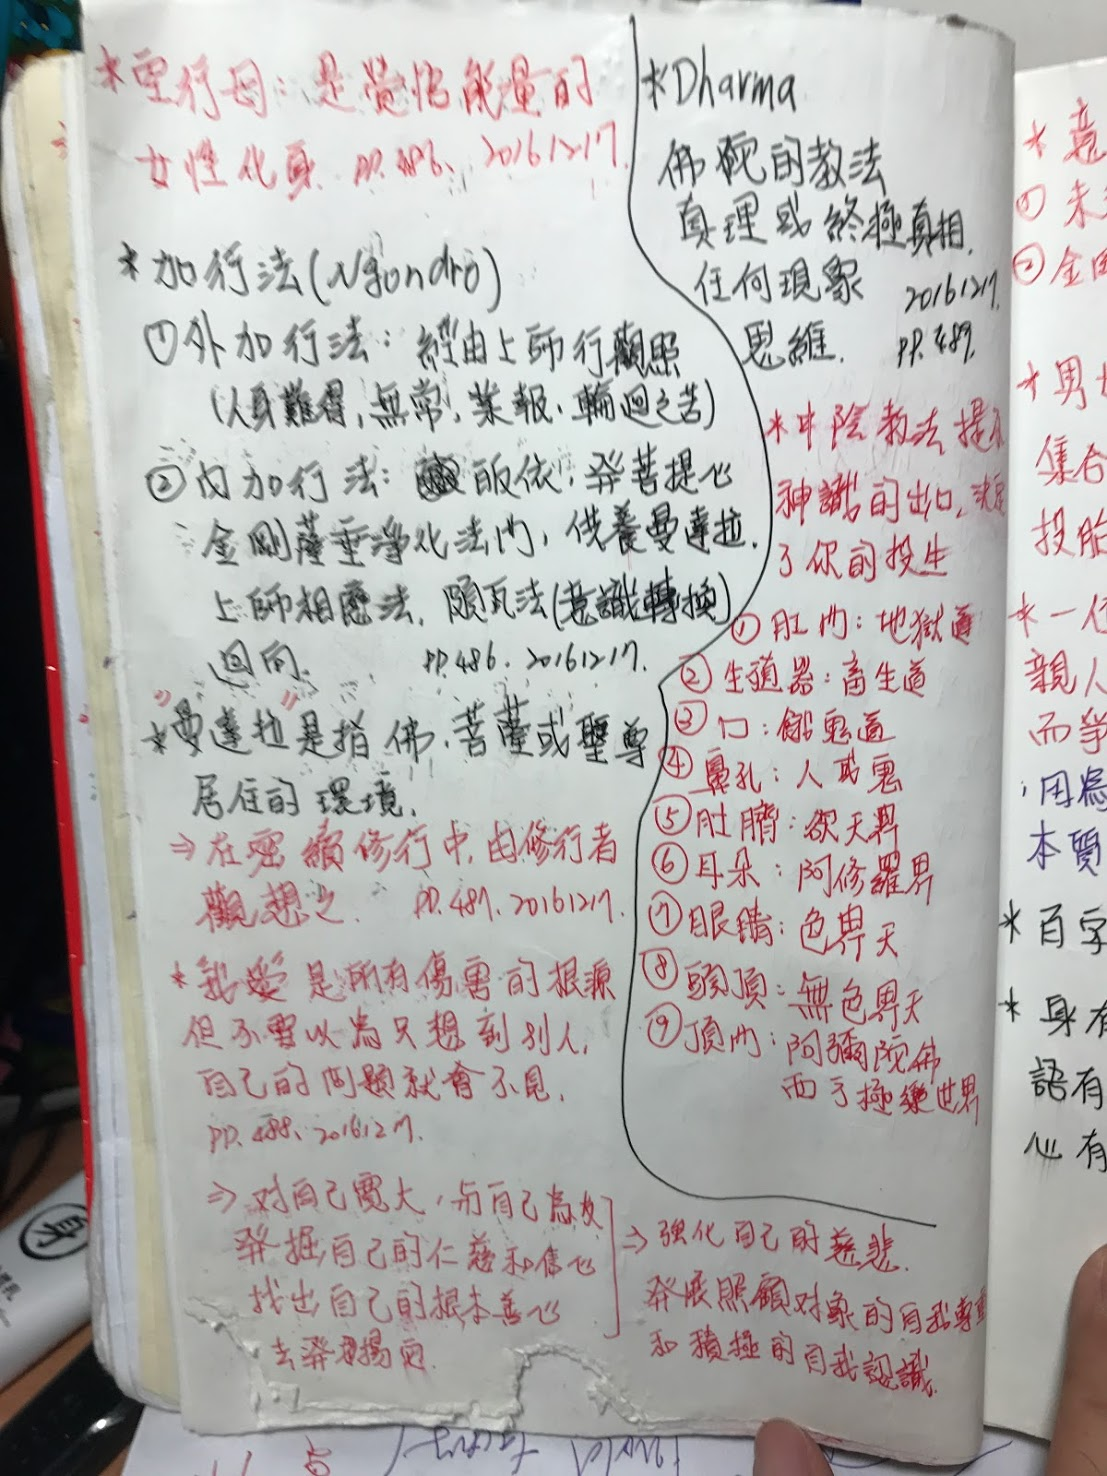 *空行母：是覺悟能量的
女性化身 PP.486、20161217.
*加行法(Ngondro)
①外加行法：經由上師行觀照
(人身難得,無常,業報,輪迴之苦)
②內加行法：皈依,發菩提心
金剛薩埵淨化法門,供養曼達拉.
上師相應法,頗瓦法(意識轉換)
迴向. PP.486.20161217.
*"曼達拉"是指佛、菩薩或聖尊
居住的環境.
⇒在密續修行中,由修行者
觀想之. PP.487.20161217.
*我愛是所有傷害的根源
但不要以為只想到別人,
自己的問題就會不見.
PP.488、20161217.
⇒对自己寬大,与自己為友
發掘自己的仁慈和信心
找出自己的根本善心
去發揚它
⇒強化自己的慈悲.
發展照顧对象的自我尊重
和積極的自我認識.
*Dharma
佛陀的教法
真理或終極真相.
任何現象 20161217.
思維. PP.489.
*中陰教法提示
神識的出口,決定
了你的投生
①肛門：地獄道
②生殖器：畜生道
③口：餓鬼道
④鼻孔：人或鬼
⑤肚臍：欲天界
⑥耳朵：阿修羅界
⑦眼睛：色界天
⑧頭頂：無色界天
⑨頂門：阿彌陀佛
西方極樂世界
*意
①未
②金
*男
集合
投胎
*一
親人
而爭
用為
本質
*百字
*身有
語有
心有